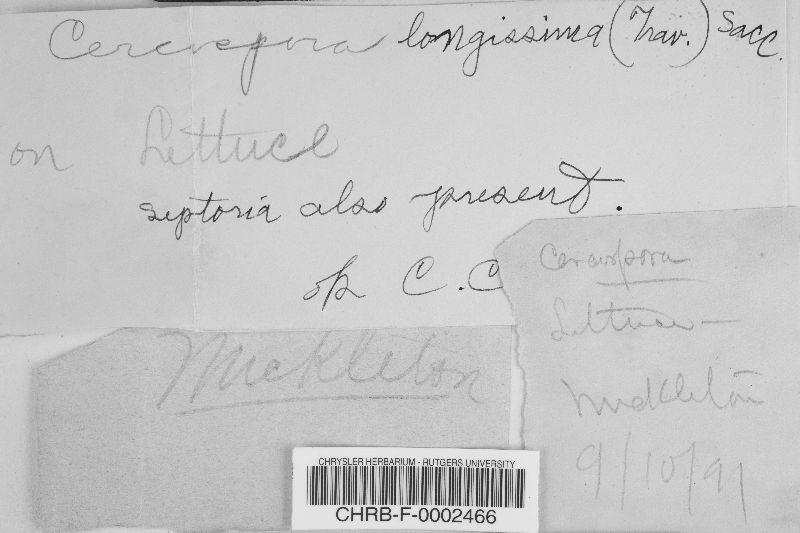 Cercospora longissima (Trav.) Sacc.
on Lettuce
septoria also present.
ok C.C
Cercospora
Lettuce —
Mickleton
Mickleton
9/10/91
CHRYSLER HERBARIUM - RUTGERS UNIVERSITY
CHRB-F-0002466